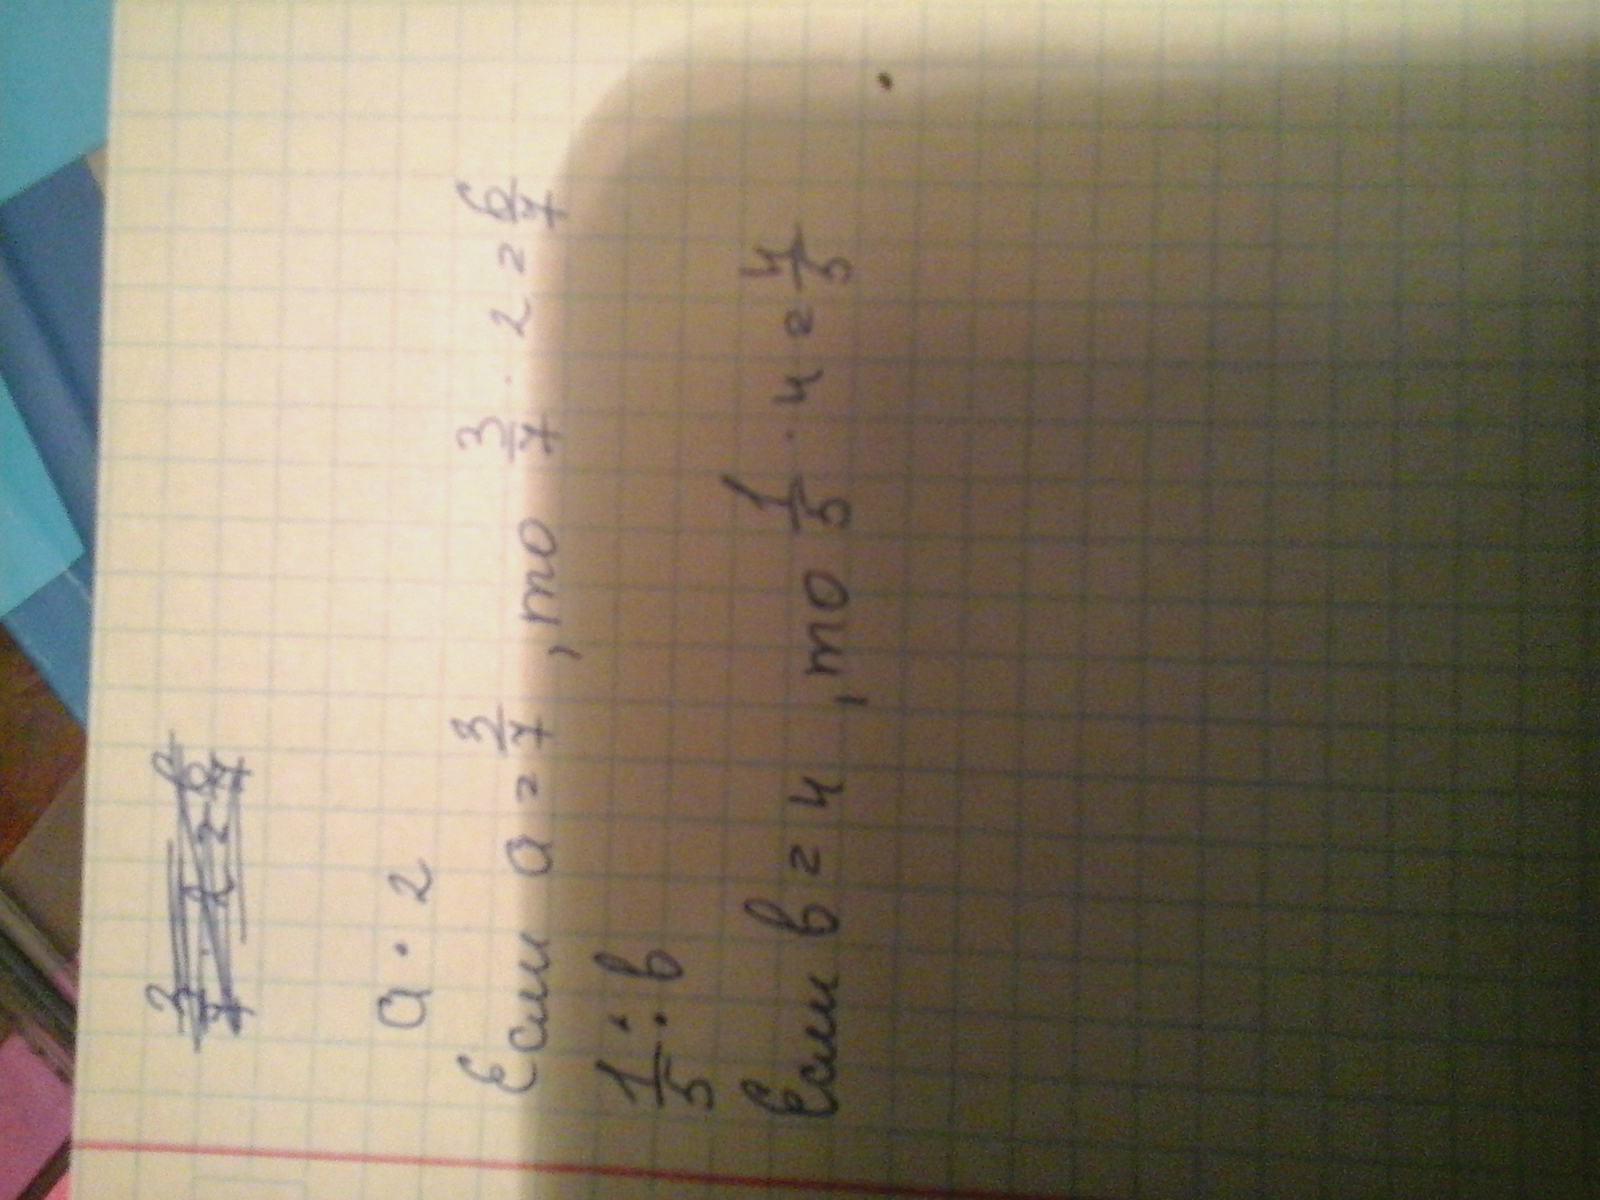 a · 2
Если a = 3/7, то 3/7 · 2 = 6/7
1/5 : в
Если в = 4, то 1/5 · 4 = 4/5